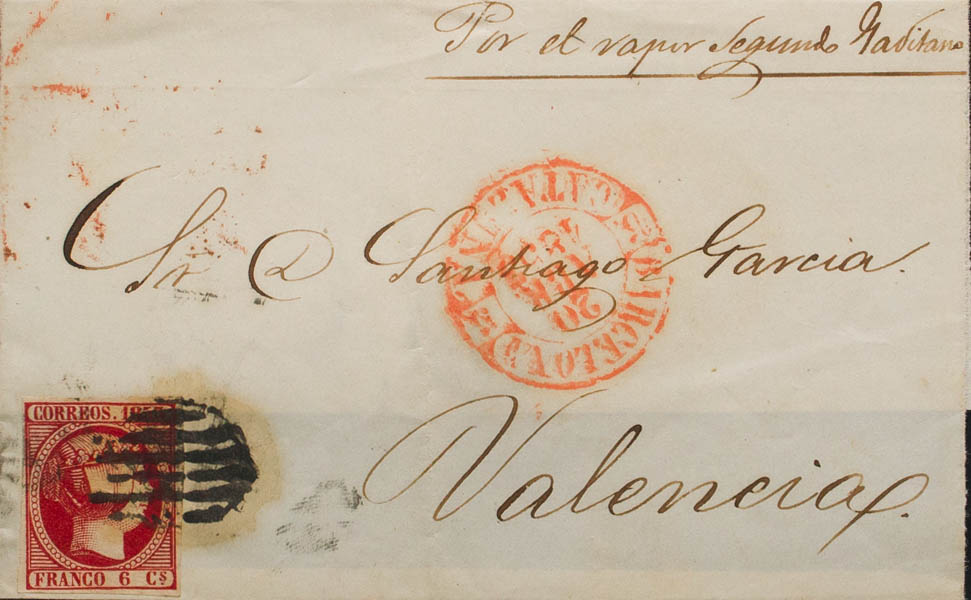 Por el vapor Segundo Gaditano
Sr. D. Santiago Garcia.
BARCELONA
CATALUÑA
20
Valencia.
CORREOS. 185
FRANCO 6 Cs